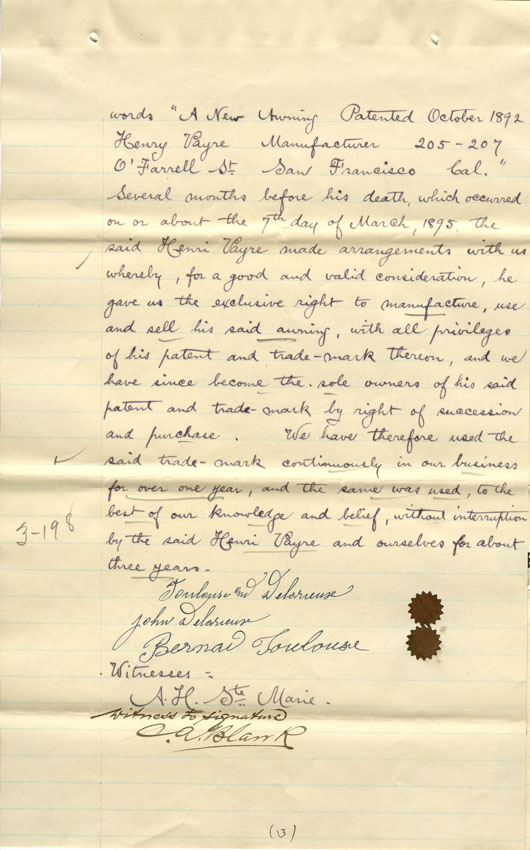 words "A New Awning Patented October 1892
Henry Vayre Manufacturer 205-207
O'Farrell St. San Francisco Cal."
Several months before his death, which occurred
on or about the 7th day of March, 1895, the
said Henri Vayre made arrangements with us
whereby, for a good and valid consideration, he
gave us the exclusive right to manufacture, use
and sell his said awning, with all privileges
of his patent and trade-mark thereon, and we
have since become the sole owners of his said
patent and trade-mark by right of succession
and purchase. We have therefore used the
said trade-mark continuously in our business
for over one year, and the same was used, to the
best of our knowledge and belief, without interruption
by the said Henri Vayre and ourselves for about
three years.
3-198
Toulouse and Delorieuse
John Delorieuse
Bernad Toulouse
Witnesses:
A. H. Ste. Marie.
Witness to signature
C. A. Blank
(3)